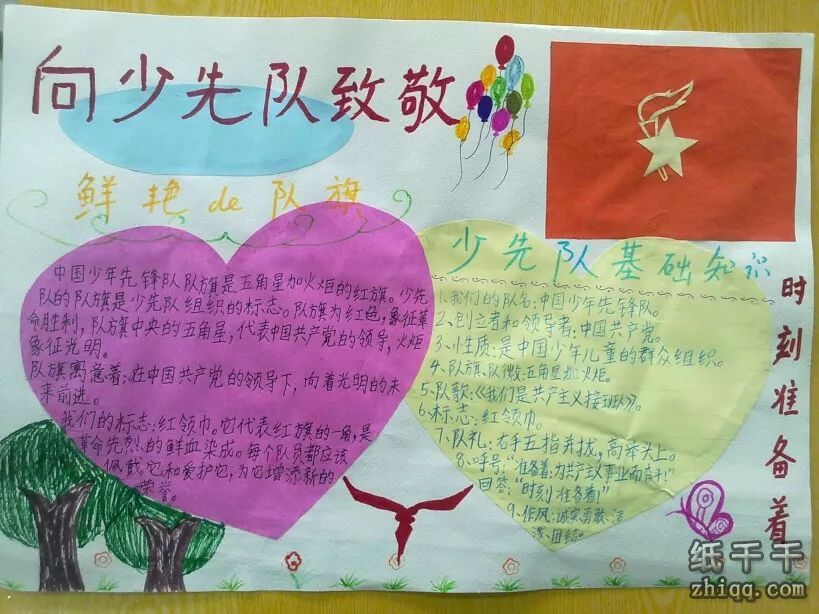 向少先队致敬
鲜艳de队旗
中国少年先锋队队旗是五角星加火炬的红旗。少先
队的队旗是少先队组织的标志。队旗为红色,象征革
命胜利,队旗中央的五角星,代表中国共产党的领导,火炬
象征光明。
队旗寓意着:在中国共产党的领导下,向着光明的未
来前进。
我们的标志:红领巾。它代表红旗的一角,是
革命先烈的鲜血染成。每个队员都应该
佩戴它和爱护它,为它增添新的
荣誉。
少先队基础知识
1.我们的队名:中国少年先锋队。
2、创立者和领导者:中国共产党。
3、性质:是中国少年儿童的群众组织。
4、队旗、队徽:五角星加火炬。
5、队歌:《我们是共产主义接班人》。
6、标志:红领巾。
7、队礼:右手五指并拢,高举头上。
8、呼号:"准备着:为共产主义事业而奋斗!"
回答:"时刻准备着!"
9、作风:诚实、勇敢、活
泼、团结。
时刻准备着
纸干干
zhiqq.com